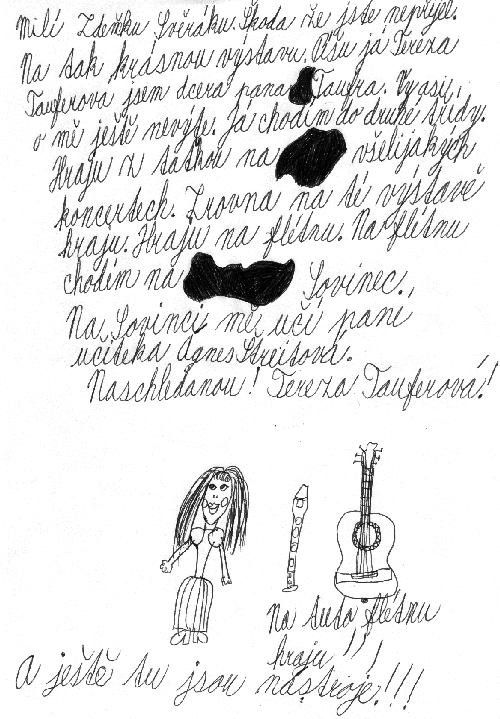 Milí Zdeňku Svěráku. Škoda že jste nepřijel.
Na tak krásnou výstavu. Píšu já Tereza
Tauferova jsem dcera pana Taufra. Vy asi,
o mě ještě nevýte. Já chodím do druhé třídy.
Hraju z taťkou na všelijakých
koncertech. Zrovna na té výstavě
hraju. Hraju na flétnu. Na flétnu
chodím na Sovinec.
Na Sovinci mě učí paní
učitelka Agnes Streitová.
Naschledanou! Tereza Tauferová!
Na tuto flétnu
hraju!!!
A ještě tu jsou nástroje!!!